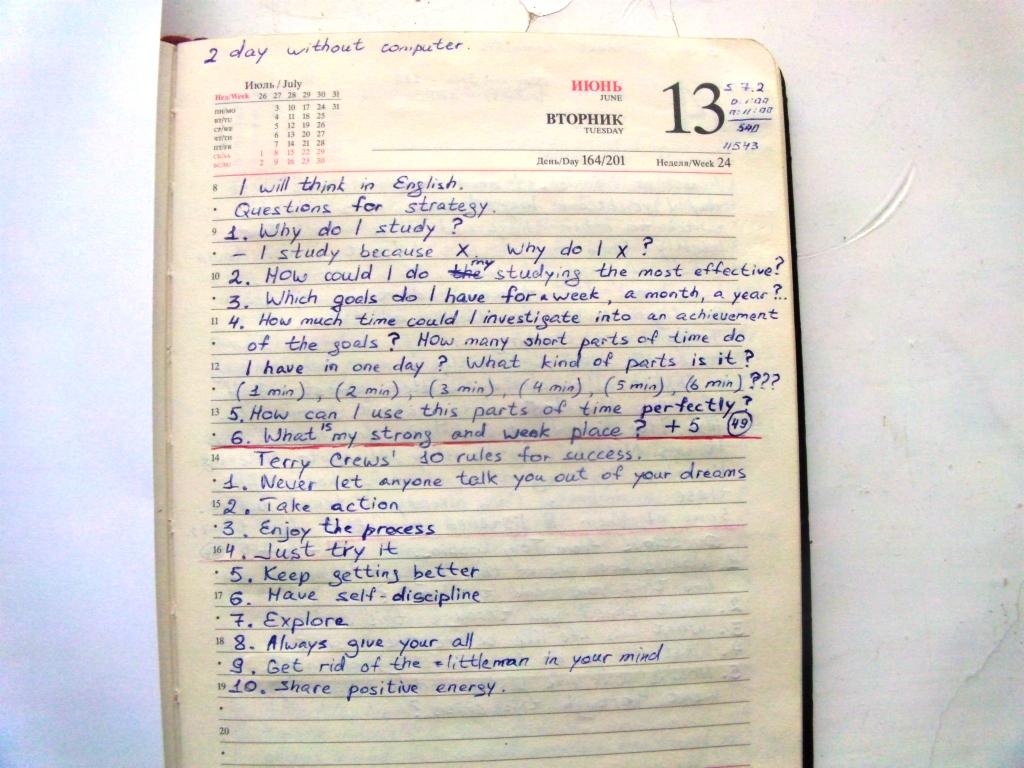 2 day without computer.
Июль / July
Нед/Week 26 27 28 29 30 31
ПН/MO 3 10 17 24 31
ВТ/TU 4 11 18 25
СР/WE 5 12 19 26
ЧТ/TH 6 13 20 27
ПТ/FR 7 14 21 28
СБ/SA 1 8 15 22 29
ВС/SU 2 9 16 23 30
ИЮНЬ
JUNE
ВТОРНИК
TUESDAY
13
5 7.2
540
11543
День/Day 164/201 Неделя/Week 24
8 I will think in English.
Questions for strategy.
9 1. Why do I study ?
– I study because X. Why do I X ?
10 2. How could I do the my studying the most effective?
3. Which goals do I have for a week, a month, a year ?..
11 4. How much time could I investigate into an achievement
of the goals ? How many short parts of time do
12 I have in one day ? What kind of parts is it ?
(1 min), (2 min), (3 min), (4 min), (5 min), (6 min) ???
13 5. How can I use this parts of time perfectly ?
6. What is my strong and weak place ? + 5 49
14 Terry Crews' 10 rules for success.
1. Never let anyone talk you out of your dreams
15 2. Take action
3. Enjoy the process
16 4. Just try it
5. Keep getting better
17 6. Have self-discipline
7. Explore
18 8. Always give your all
9. Get rid of the littleman in your mind
19 10. Share positive energy.
20